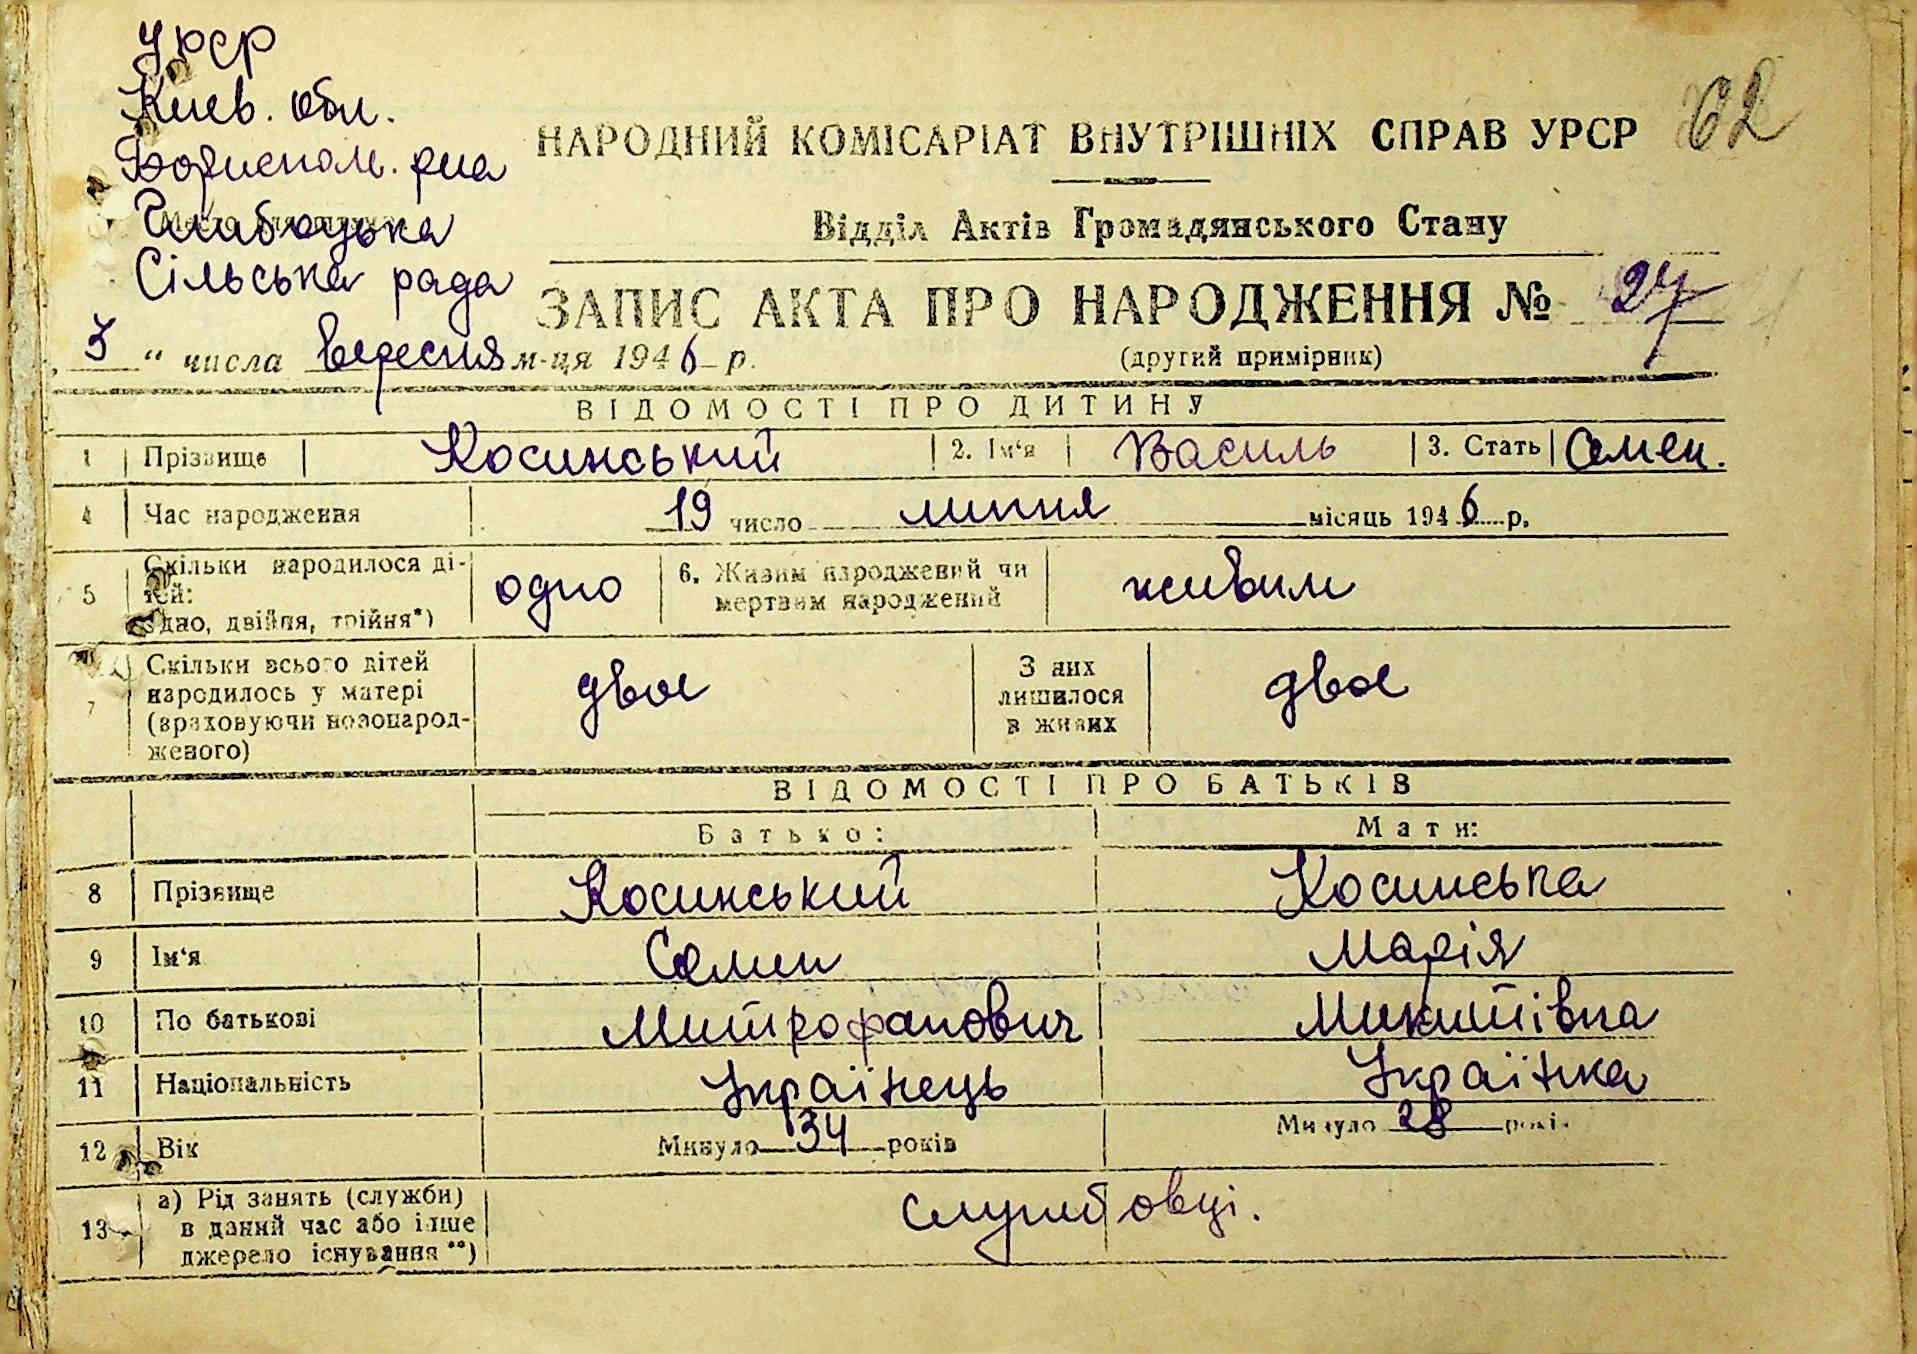 УРСР
Киев. обл.
Бориспол. р-на
Сільська рада
62
НАРОДНИЙ КОМІСАРІАТ ВНУТРІШНІХ СПРАВ УРСР
Відділ Актів Громадянського Стану
ЗАПИС АКТА ПРО НАРОДЖЕННЯ № 27
(другий примірник)
„ 3 “ числа вересня м-ця 1946 р.
ВІДОМОСТІ ПРО ДИТИНУ
1 Прізвище Косинський 2. Ім‘я Василь 3. Стать Семен.
4 Час народження 19 число липня місяць 1946 р.
5 Скільки народилося ді-
тей:
одно, двійня, трійня*) одно 6. Живим народжений чи
мертвим народжений живим
7 Скільки всього дітей
народилось у матері
(враховуючи новонарод-
женого) двоє З них
лишилося
в живих двоє
ВІДОМОСТІ ПРО БАТЬКІВ
Батько: Мати:
8 Прізвище Косинський Косинська
9 Ім‘я Семен Марія
10 По батькові Митрофанович Микитівна
11 Національність Українець Українка
12 Вік Минуло 34 років Минуло 28 років
13 а) Рід занять (служби)
в даний час або інше
джерело існування**) службовці.